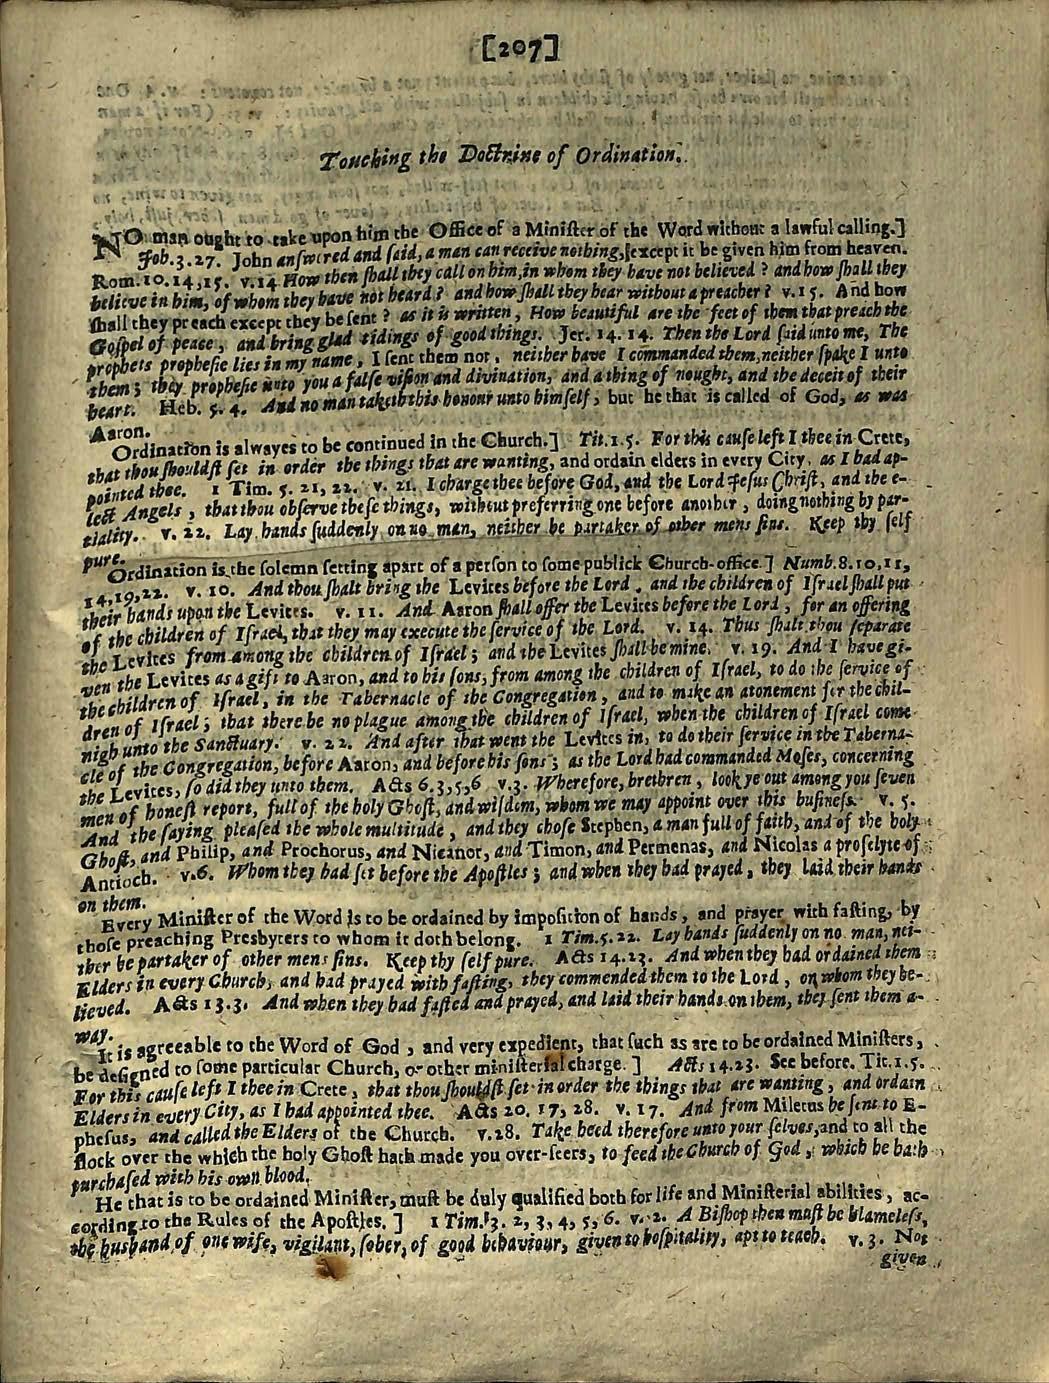 [207]
Touching the Doctrine of Ordination.
NO man ought to take upon him the Office of a Miniſter of the Word without a lawful calling.]
Joh. 3. 27. John anſwered and ſaid, a man can receive nothing, except it be given him from heaven.
Rom. 10. 14, 15. v. 14 How then ſhall they call on him, in whom they have not believed ? and how ſhall they
believe in him, of whom they have not heard ? and how ſhall they hear without a preacher ? v. 15. And how
ſhall they preach except they be ſent ? as it is written, How beautiful are the feet of them that preach the
Goſpel of peace, and bring glad tidings of good things. Jer. 14. 14. Then the Lord ſaid unto me, The
prophets propheſie lies in my name, I ſent them not, neither have I commanded them, neither ſpake I unto
them ; they propheſie unto you a falſe viſion and divination, and a thing of nought, and the deceit of their
heart. Heb. 5. 4. And no man taketh this honour unto himſelf, but he that is called of God, as was
Aaron.
Ordination is alwayes to be continued in the Church.] Tit. 1. 5. For this cauſe left I thee in Crete,
that thou ſhouldſt ſet in order the things that are wanting, and ordain elders in every City, as I had ap-
pointed thee. 1 Tim. 5. 21, 22. v. 21. I charge thee before God, and the Lord Jeſus Chriſt, and the e-
lect Angels, that thou obſerve theſe things, without preferring one before another, doing nothing by par-
tiality. v. 22. Lay hands ſuddenly on no man, neither be partaker of other mens ſins. Keep thy ſelf
pure.
Ordination is the ſolemn ſetting apart of a perſon to ſome publick Church-office.] Numb. 8. 10, 11,
14, 19, 22. v. 10. And thou ſhalt bring the Levites before the Lord, and the children of Iſrael ſhall put
their hands upon the Levites. v. 11. And Aaron ſhall offer the Levites before the Lord, for an offering
of the children of Iſrael, that they may execute the ſervice of the Lord. v. 14. Thus ſhalt thou ſeparate
the Levites from among the children of Iſrael ; and the Levites ſhall be mine. v. 19. And I have gi-
ven the Levites as a gift to Aaron, and to his ſons, from among the children of Iſrael, to do the ſervice of
the children of Iſrael, in the Tabernacle of the Congregation, and to make an atonement for the chil-
dren of Iſrael ; that there be no plague among the children of Iſrael, when the children of Iſrael come
nigh unto the Sanctuary. v. 22. And after that went the Levites in, to do their ſervice in the Taberna-
cle of the Congregation, before Aaron, and before his ſons ; as the Lord had commanded Moſes, concerning
the Levites, ſo did they unto them. Acts 6. 3, 5, 6 v. 3. Wherefore, brethren, look ye out among you ſeven
men of honeſt report, full of the holy Ghoſt, and wiſdom, whom we may appoint over this buſineſs. v. 5.
And the ſaying pleaſed the whole multitude, and they choſe Stephen, a man full of faith, and of the holy
Ghoſt, and Philip, and Prochorus, and Nicanor, and Timon, and Permenas, and Nicolas a proſelyte of
Antioch. v. 6. Whom they had ſet before the Apoſtles ; and when they had prayed, they laid their hands
on them.
Every Miniſter of the Word is to be ordained by impoſition of hands, and prayer with faſting, by
thoſe preaching Presbyters to whom it doth belong. 1 Tim. 5. 22. Lay hands ſuddenly on no man, nei-
ther be partaker of other mens ſins. Keep thy ſelf pure. Acts 14. 23. And when they had ordained them
Elders in every Church, and had prayed with faſting, they commended them to the Lord, on whom they be-
lieved. Acts 13. 3. And when they had faſted and prayed, and laid their hands on them, they ſent them a-
way.
It is agreeable to the Word of God, and very expedient, that ſuch as are to be ordained Miniſters,
be deſigned to ſome particular Church, or other miniſterial charge.] Acts 14. 23. See before. Tit. 1. 5.
For this cauſe left I thee in Crete, that thou ſhouldſt ſet in order the things that are wanting, and ordain
Elders in every City, as I had appointed thee. Acts 20. 17, 28. v. 17. And from Miletus he ſent to E-
pheſus, and called the Elders of the Church. v. 28. Take heed therefore unto your ſelves, and to all the
flock over the which the holy Ghoſt hath made you over-ſeers, to feed the Church of God, which he hath
purchaſed with his own blood.
He that is to be ordained Miniſter, muſt be duly qualified both for life and Miniſterial abilities, ac-
cording to the Rules of the Apoſtles.] 1 Tim. 3. 2, 3, 4, 5, 6. v. 2. A Biſhop then muſt be blameleſs,
the husband of one wife, vigilant, ſober, of good behaviour, given to hoſpitality, apt to teach. v. 3. Not
given